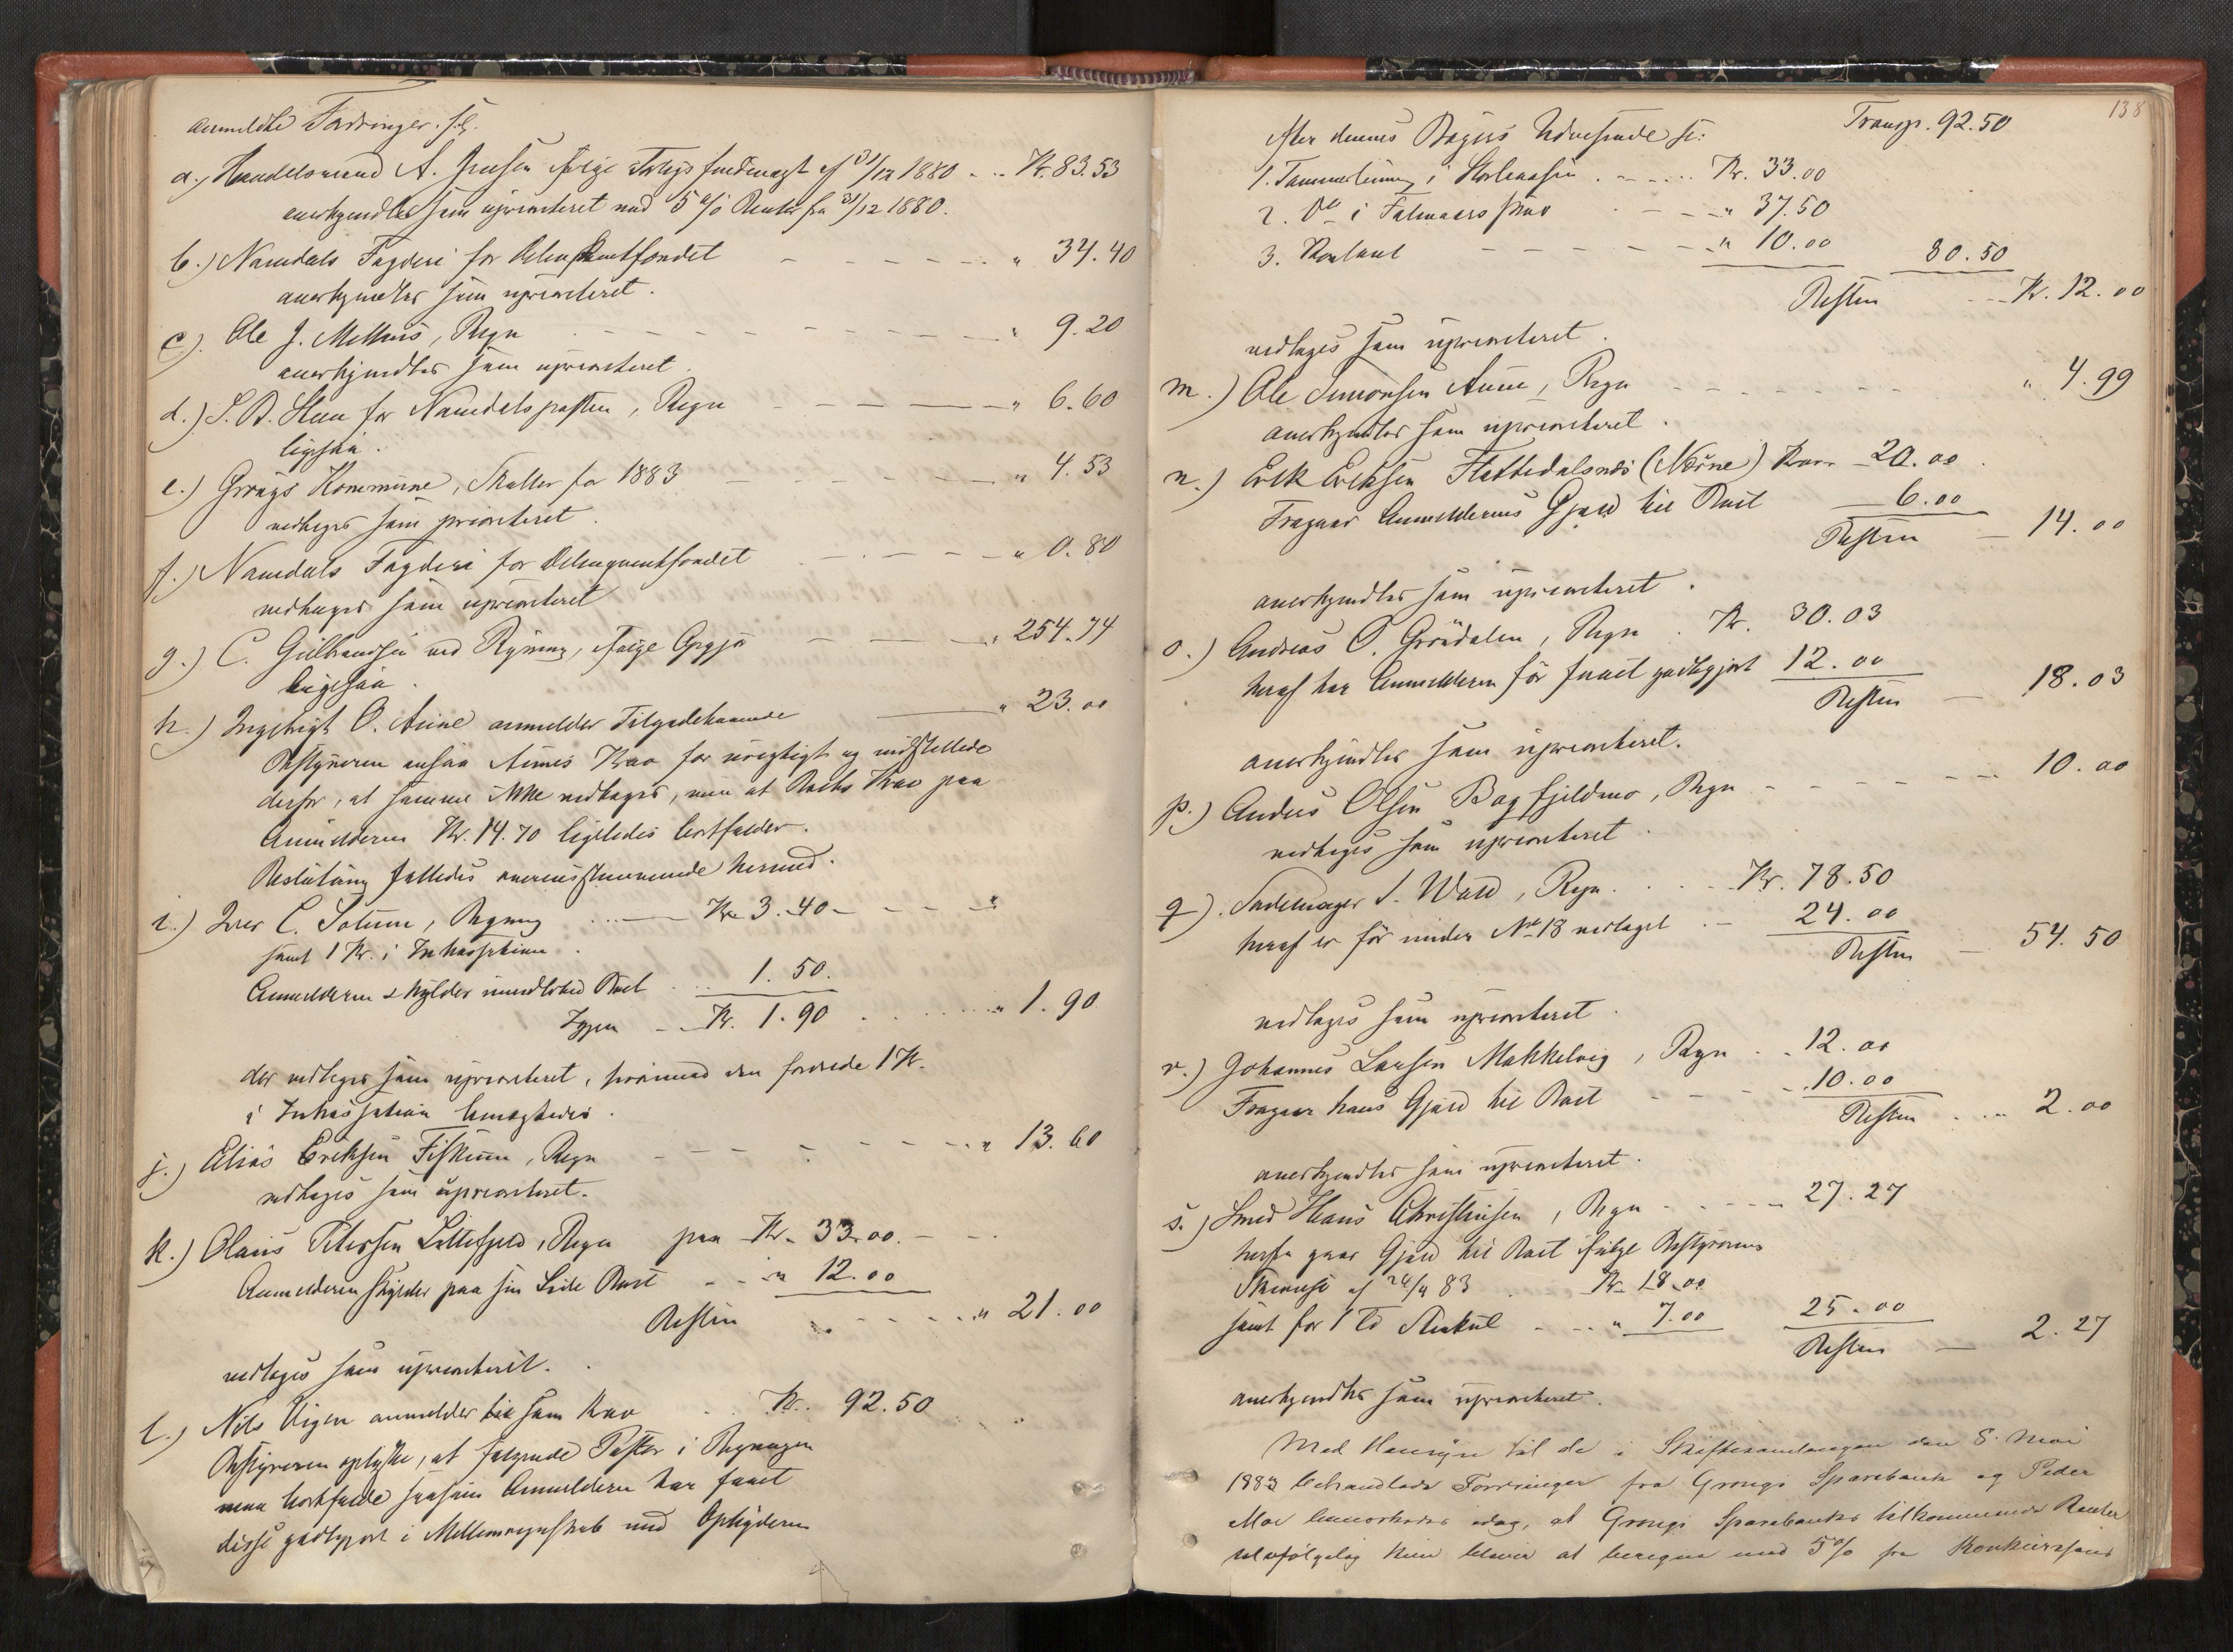 anmeldte Fordringer. s.
a.) Handelsmand A. Jensen ifølge af 31/12 1880 - .. Kr. 83.53
anerkjendtes som uprioriteret med 5 % Renter fra 31/12 1880.
b.) Namdals Fogderi for Delinkventfondet - - - - - " 34.40
anerkjendtes som uprioriteret.
c). Ole J. Mellus, Regn - - - - - - - " 9.20
anerkjendtes som uprioriteret.
d.) S. B. for Namdalsposten, Regn - - - - " 6.60
ligesaa.
e.) Grongs Kommune, Skatter for 1883 - - - - - " 4.53
vedtages som prioriteret.
f.) Namdals Fogderi for Delinquentfondet - - - - " 0.80
vedtages som uprioriteret
g.) C. Gulbrandsen ved Ryning, ifølge Opgjør - - - " 254.74
ligesaa.
h.) Ingebrigt O. Aune anmelder Tilgodehavende - " 23.00
Bestyreren ansaa Aunes Krav for urigtigt og indstillede
derfor, at samme ikke vedtages, men at Boets Krav paa
Anmelderen Kr. 14.70 ligeledes bortfalder.
Beslutning fattedes overensstemmende hermed.
i.) Iver C. Solum, Regning ... Kr. 3.40 - - - "
samt 1 Kr. i Inkassation.
Anmelderen skylder imidlertid Boet .. 1.50.
Igjen - - Kr. 1.90 . . . . . . " 1.90
der vedtages som uprioriteret, hvorimod den fordrede 1 Kr.
i Inkassation benegtedes.
j.) Elias Eriksen Fiskum, Regn - - - - - - " 13.60
vedtages som uprioriteret.
k.) Olaus Petersen Littefjeld, Regn paa Kr. 33.00. - - -
Anmelderen skylder paa sin Side Boet - - " 12.00
Resten . . - - - " 21.00
vedtages som uprioriteret.
l.) Nils Vigen anmelder som Krav . . Kr. 92.50
Bestyreren oplyste, at følgende Poster i Regningen
maa bortfalde saasom Anmelderen har faaet
disse godtgjort i Mellemregnskab med Opbyderen
138
efter dennes Bøgers Udvisende s: Transp. 92.50
1. Tømmerlunning i . - - - .. Kr. 33.00
2. Do i - - - " 37.50
3. Kontant - - - - - - " 10.00 80.50
Resten - - - Kr. 12.00
vedtages som uprioriteret.
m.) Ole Simonsen Aune, Regn - - - - - - " 4.99
anerkjendtes som uprioriteret.
n.) Erik Eriksen Flattedalsnæs (Nørne) Krav - 20.00
Fragaar Anmelderens Gjæld til Boet - 6.00
Resten - 14.00
anerkjendtes som uprioriteret.
o.) Andreas O. Grøndalen, Regn . Kr. 30.03
heraf har Anmelderen før faaet godtgjort 12.00
Resten - 18.03
anerkjendtes som uprioriteret.
p.) Anders Olsen Bagfjeldmo, Regn - - - - - - 10.00
vedtages som uprioriteret.
q). Sadelmager S. Wald, Regn. . . - Kr. 78.50
heraf er før under No 18 vedtaget . - 24.00
Resten - 54.50
vedtages som uprioriteret.
r.) Johannes Larsen Makkelvig, Regn . . 12.00
Fragaar hans Gjæld til Boet - - - - 10.00
Resten . .. 2.00
anerkjendtes som uprioriteret.
s.) Smed Hans Christensen, Regn - - - - 27.27
herfra gaar Gjæld til Boet ifølge Bestyrerens
Skrivelse af 24/4 83 . Kr. 18.00
samt for 1 Td Stenkul - - - " 7.00 25.00
Resten - 2.27
anerkjendtes som uprioriteret.
Med Hensyn til de i Skiftesamlingen den 8. Mai
1883 behandlede Fordringer fra Grongs Sparebank og Peder
Moe bemærkedes idag, at Grongs Sparebanks tilkommende Renter
selvfølgelig kun bliver at beregne med 5 % fra Konkursens